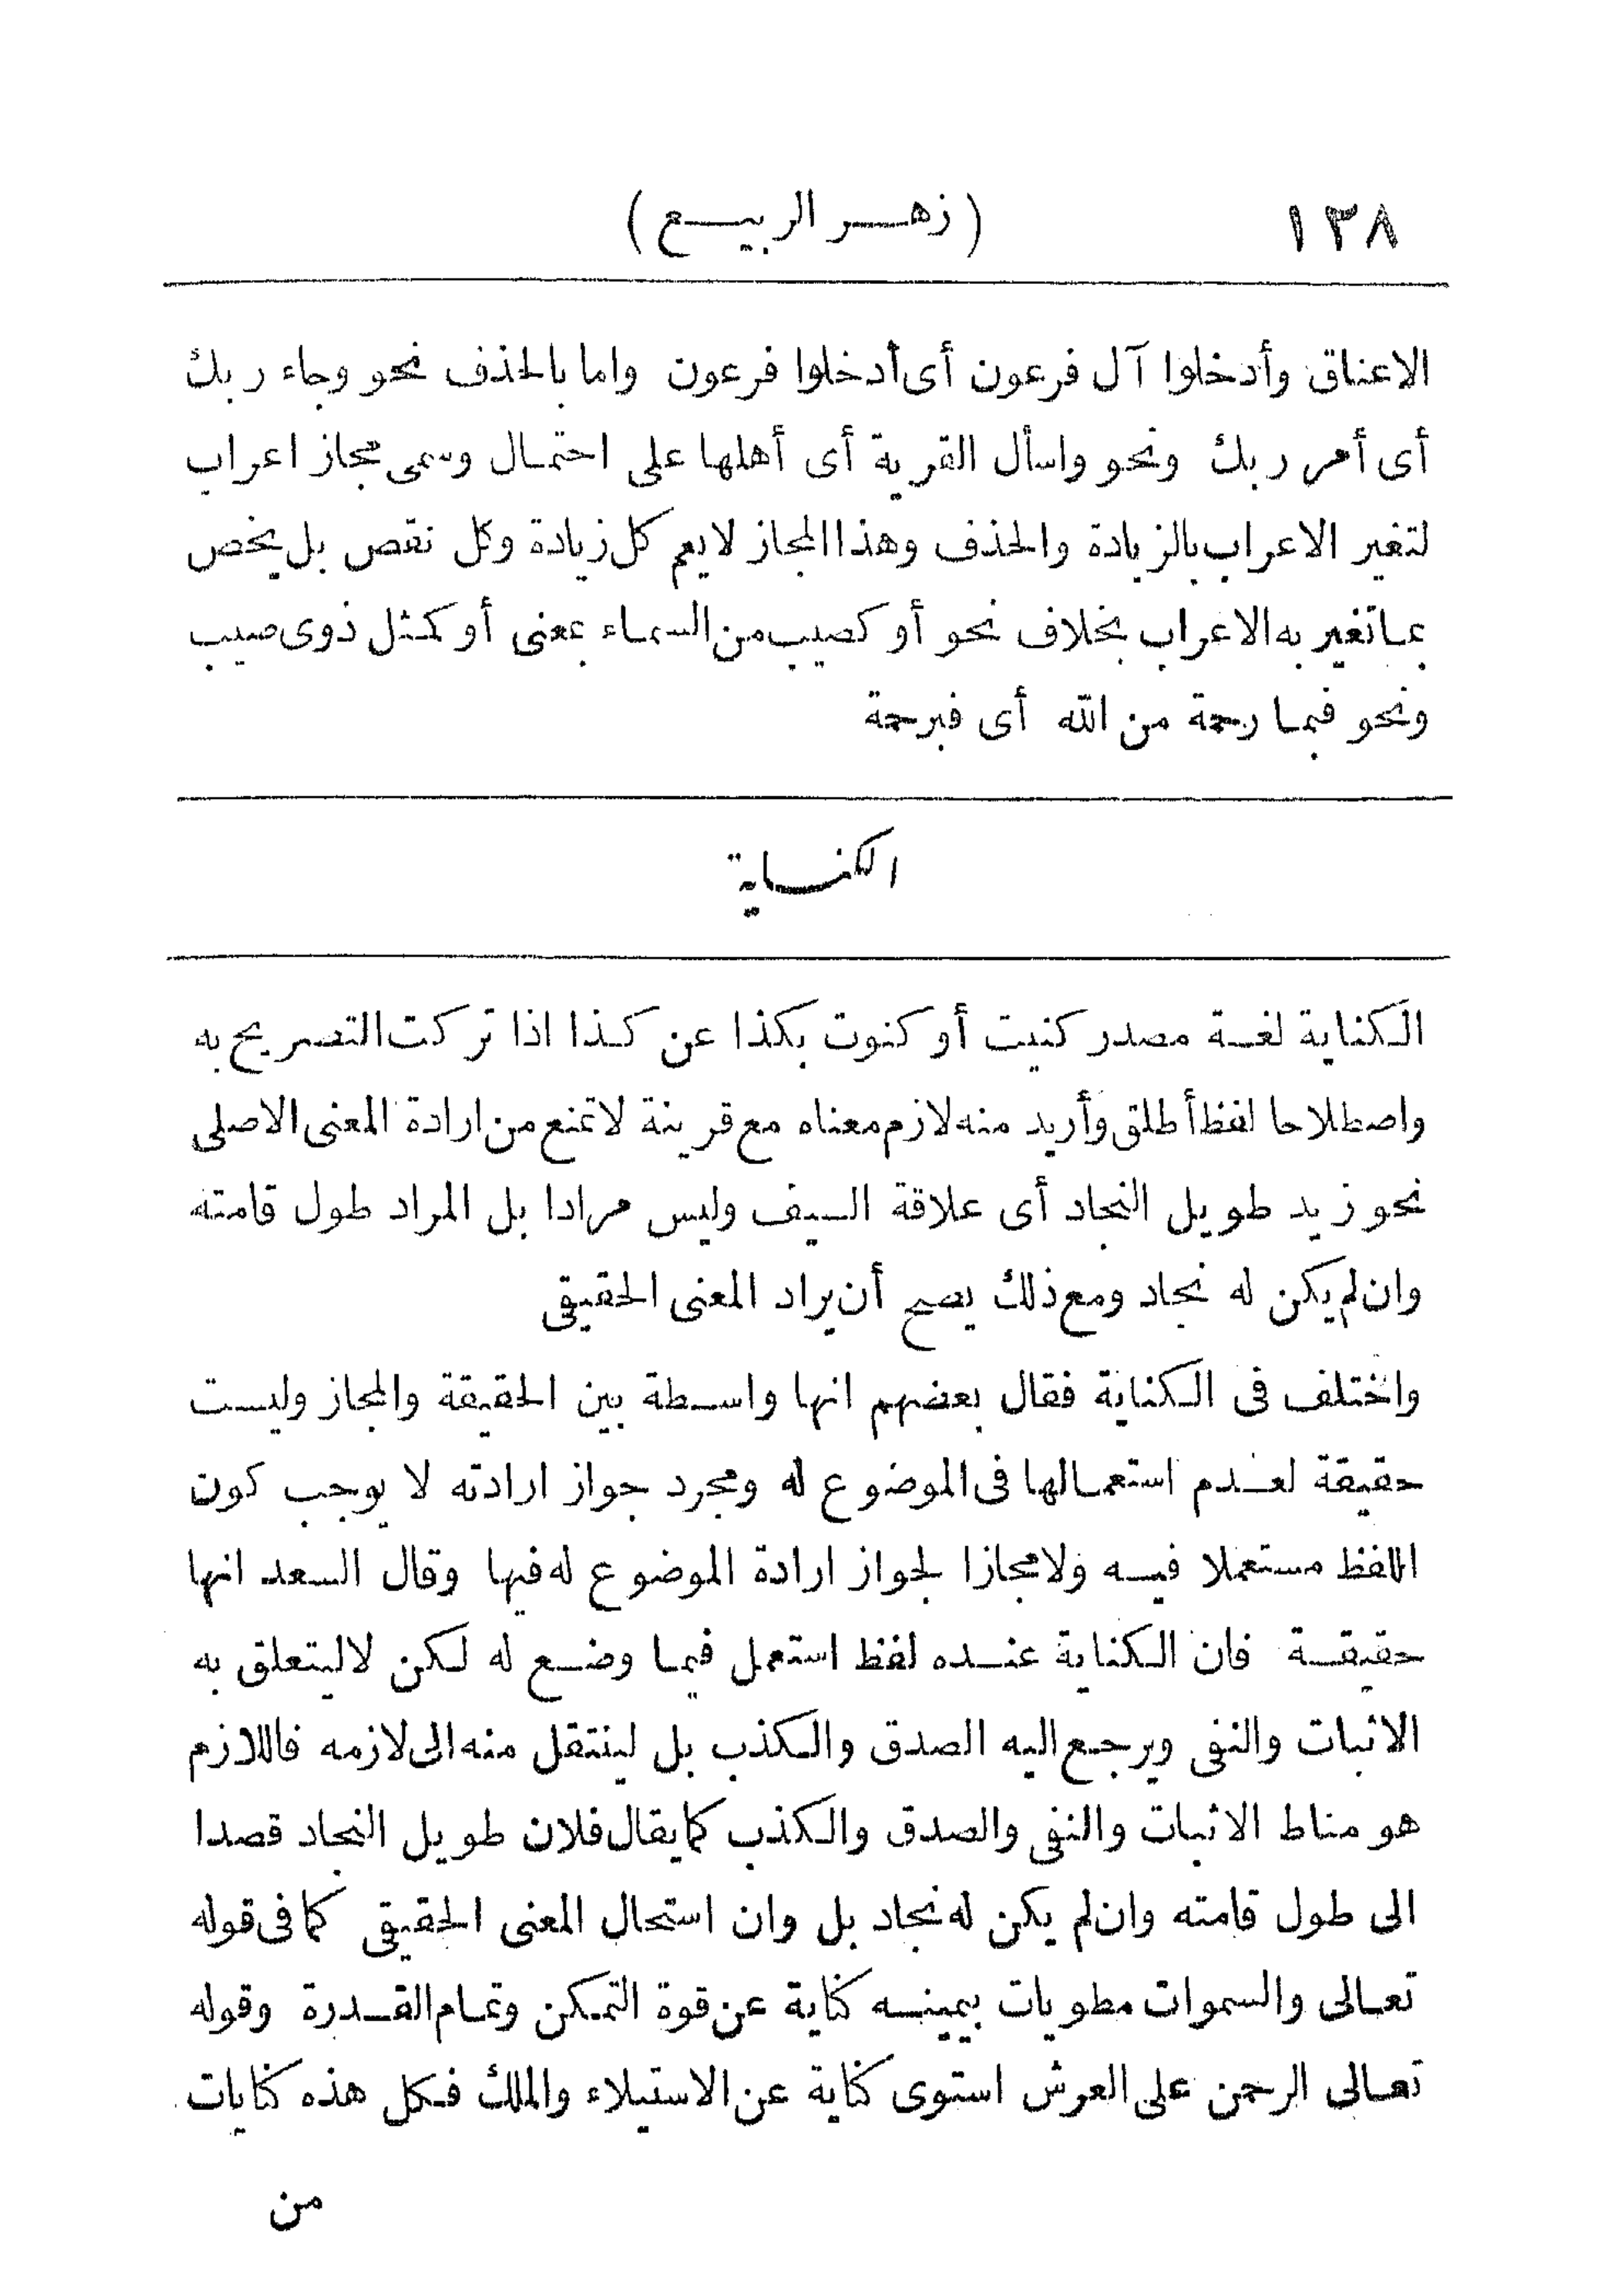 ١٣٨ (زهر الربيع)
الاعناق وأدخلوا آل فرعون أى أدخلوا فرعون واما بالحذف نحو وجاء ربك
أى أمر ربك ونحو واسأل القرية أى أهلها على احتمال وسمى مجاز اعراب
لتغير الاعراب بالزيادة والحذف وهذا المجاز لا يعم كل زيادة وكل نقص بل يخص
بما تغير به الاعراب بخلاف نحو أو كصيب من السماء بمعنى أو كمثل ذوى صيب
ونحو فبما رحمة من الله أى فبرحمة
الكناية
الكناية لغة مصدر كنيت أو كنوت بكذا عن كذا اذا تركت التصريح به
واصطلاحا لفظ أطلق وأريد منه لازم معناه مع قرينة لا تمنع من ارادة المعنى الاصلى
نحو زيد طويل النجاد أى علاقة السيف وليس مرادا بل المراد طول قامته
وان لم يكن له نجاد ومع ذلك يصح أن يراد المعنى الحقيقى
واختلف فى الكناية فقال بعضهم انها واسطة بين الحقيقة والمجاز وليست
حقيقة لعدم استعمالها فى الموضوع له ومجرد جواز ارادته لا يوجب كون
اللفظ مستعملا فيه ولا مجازا لجواز ارادة الموضوع له فيها وقال السعد انها
حقيقة فان الكناية عنده لفظ استعمل فيما وضع له لكن لا ليتعلق به
الاثبات والنفى ويرجع اليه الصدق والكذب بل لينتقل منه الى لازمه فاللازم
هو مناط الاثبات والنفى والصدق والكذب كما يقال فلان طويل النجاد قصدا
الى طول قامته وان لم يكن له نجاد بل وان استحال المعنى الحقيقى كما فى قوله
تعالى والسموات مطويات بيمينه كناية عن قوة التمكن وتمام القدرة وقوله
تعالى الرحمن على العرش استوى كناية عن الاستيلاء والملك فكل هذه كنايات
من